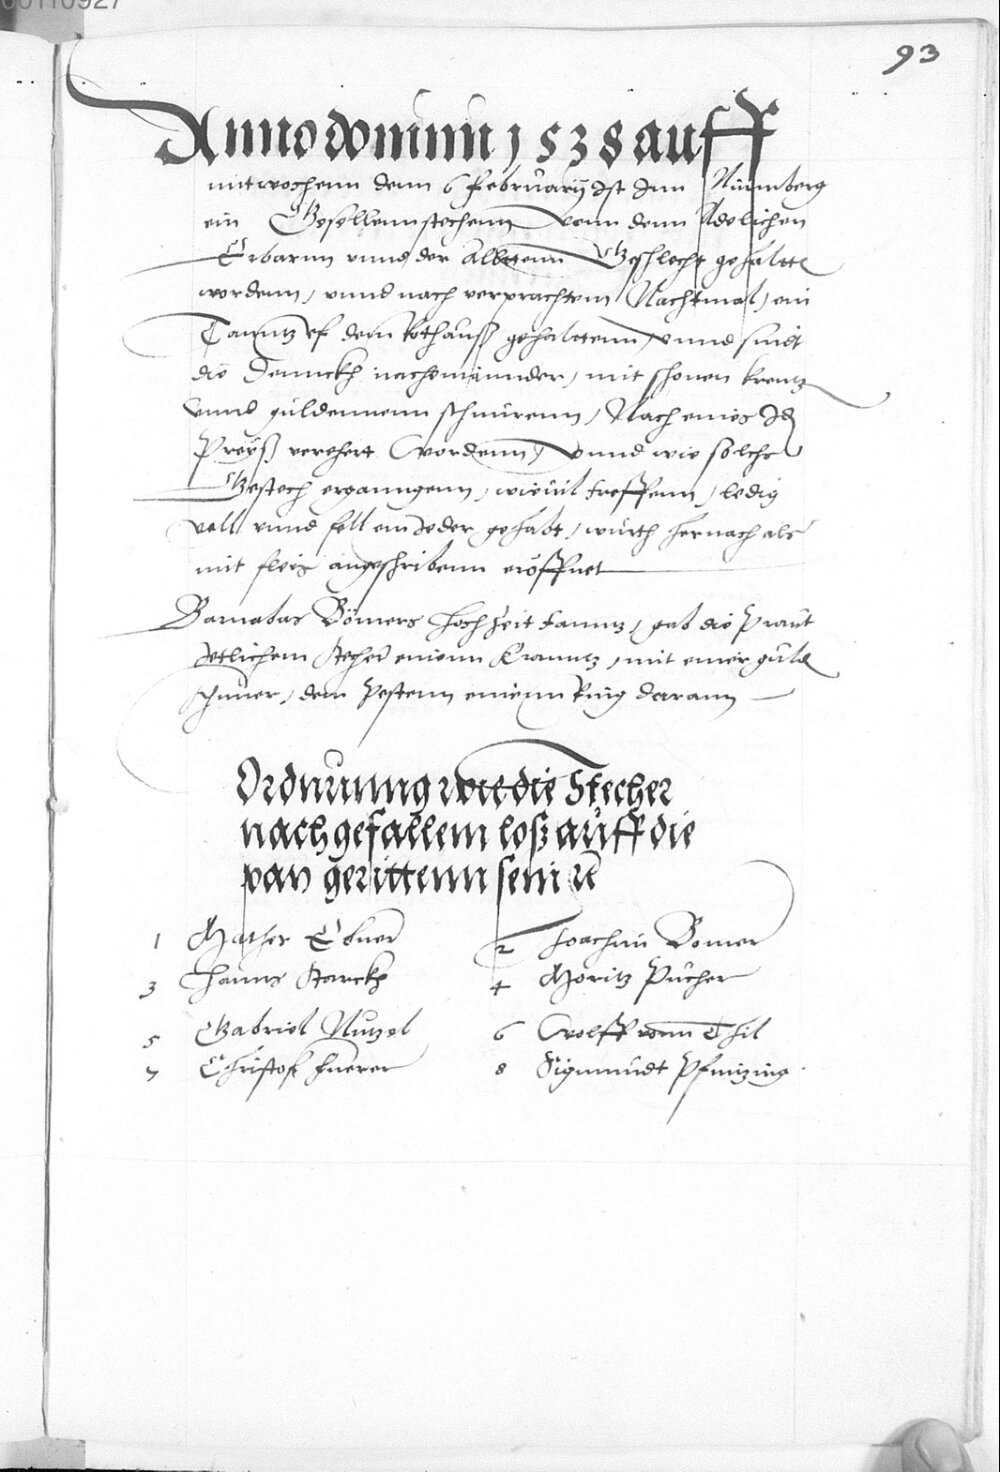 00110927
93
Anno domini 1538 auff
mitwochenn denn 6 february ist Inn Nurmberg
ein Gesellennstechenn vonn denn Adelichen
Erbarnn unnd der Alltenn Geschlecht gehaltte
wordenn, unnd nach verprachtem Nachtmal, ein
Tanntz uf dem Rothauß gehalttenn, unnd sindt
die Dennckh nacheinannder, mit schonen krentz
unnd guldennenn schnurenn, Nach eines Jdn
Preyß verehert wordenn, unnd wie solchs
Gestech erganngenn, wievil treffenn, ledig
vell unnd fell ein Jeder gehabt, wurth hernach als
mit fleis angeschribenn eröffnet
Barnabas Bömers hochzeit tanntz, gab die Praut
Jetlichem stecher einenn Kranntz, mit einer guld
schnuer, dem Pestenn einenn Ring darann
Ordnunng wie die Stecher
nach gefallem loß auff die
pan gerittenn sein
1 Mathes Ebner
2 Joachim Bomer
3 Hanns Starckh
4 Moritz Fürher
5 Gabriel Nutzel
6 Wolff vonn Thil
7 Christof Fuerer
8 Sigmundt Pfintzing